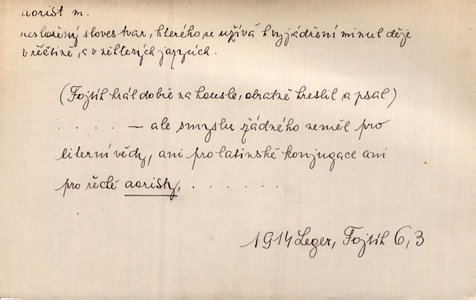 aorist m.
nesložený sloves tvar, kterého se užívá k vyjádření minul děje
v řečtině, a v některých jazycích.
(Fojtík hrál dobře na housle, obratně kreslil a psal)
. . . . — ale smyslu žádného neměl pro
literní vědy, ani pro latinské konjugace ani
pro řecké aoristy, . . . . . . .
1914 Leger, Fojtík 6,3